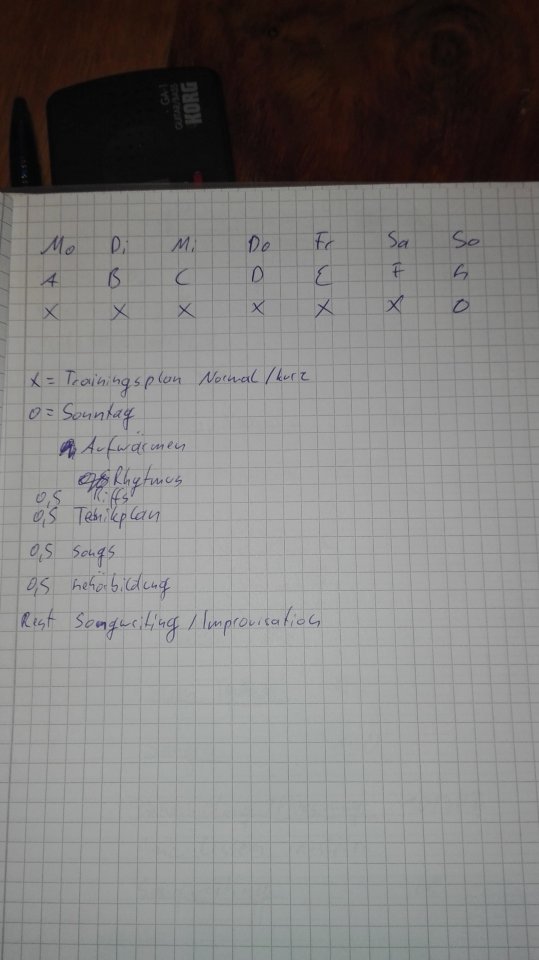 GA-1
GUITAR/BASS
KORG
Mo Di Mi Do Fr Sa So
A B C D E F G
X X X X X X O
X = Trainingsplan Normal/kurz
O = Sonntag
Aufwärmen
Rhytmus
0,5 Riffs
0,5 Tehnikplan
0,5 Songs
0,5 Gehörbildung
Rest Songwriting / Improvisation